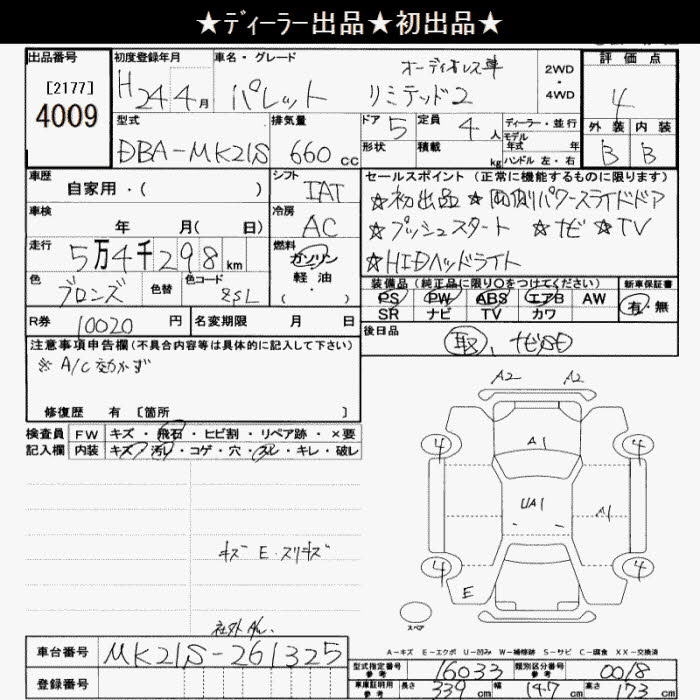 ★ディーラー出品★初出品★
出品番号
[2177]
4009
初度登録年月
H24年4月
車名・グレード
パレット
オーディオレス車
リミテッド2
2WD
・
4WD
評価点
4
外装 内装
B B
型式
DBA-MK21S
排気量
660cc
ドア 5
形状
定員 4人
積載 kg
ディーラー・並行
モデル
年式 年
ハンドル 左・右
車歴
自家用・( )
シフト
IAT
車検
年 月( 日)
冷房
AC
走行
5万4千298km
燃料
ガソリン
軽油
( )
色
ブロンズ
色替
色コード
ZSL
R券 10020円
名変期限 月 日
セールスポイント (正常に機能するものに限ります)
★初出品 ★両側パワースライドドア
★プッシュスタート ★ナビ ★TV
★HIDヘッドライト
装備品 (純正品に限り〇をつけてください)
新車保証書
PS PW ABS エアB AW
SR ナビ TV カワ
有・無
後日品
取、ナビSD
注意事項申告欄 (不具合内容等は具体的に記入して下さい)
※ A/C効かず
修復歴 有 [箇所 ]
検査員 FW キズ・飛石・ヒビ割・リペア跡・×要
記入欄 内装 キズ・汚れ・コゲ・穴・スレ・キレ・破レ
キズ E・スリキズ
社外AW.
A2 A2
4 A1 4
UA1 A1
4 4
E
スペア
A-キズ E-エクボ U-凹み W-補修跡 S-サビ C-腐食 XX-交換済
車台番号 MK21S-261325
登録番号
型式指定番号
参考
16033
類別区分番号
参考
0018
車庫証明用
参考
長さ 339cm 幅 147cm 高さ 173cm